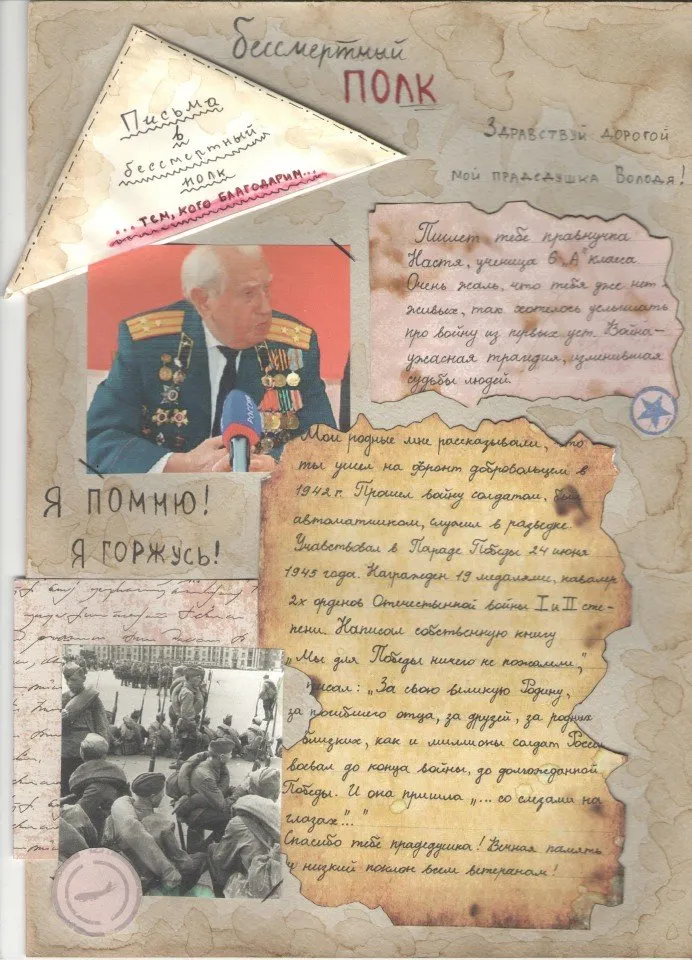 бессмертный
ПОЛК
Письма
в
бессмертный
полк
...ТЕМ, КОГО БЛАГОДАРИМ...
ЗДРАВСТВУЙ ДОРОГОЙ
МОЙ ПРАДЕДУШКА ВОЛОДЯ!
Пишет тебе правнучка
Настя, ученица 6 „А" класса
Очень жаль, что тебя уже нет
живых, так хотелось услышать
про войну из первых уст. Война-
ужасная трагедия, изменившая
судьбы людей.
РОССИЯ
Мои родные мне рассказывали, что
ты ушел на фронт добровольцем в
1942 г. Прошел войну солдатом, был
автоматчиком, служил в разведке.
Учавствовал в Параде Победы 24 июня
1945 года. Награжден 19 медалями, кавалер
2х орденов Отечественной войны I и II сте-
пени. Написал собственную книгу
„Мы для Победы ничего не пожалели,"
писал: „За свою великую Родину,
за погибшего отца, за друзей, за родных
близких, как и миллионы солдат России
воевал до конца войны, до долгожданной
Победы. И она пришла „... со слезами на
глазах"..."
Спасибо тебе прадедушка! Вечная память
и низкий поклон всем ветеранам!
Я ПОМНЮ!
Я ГОРЖУСЬ!